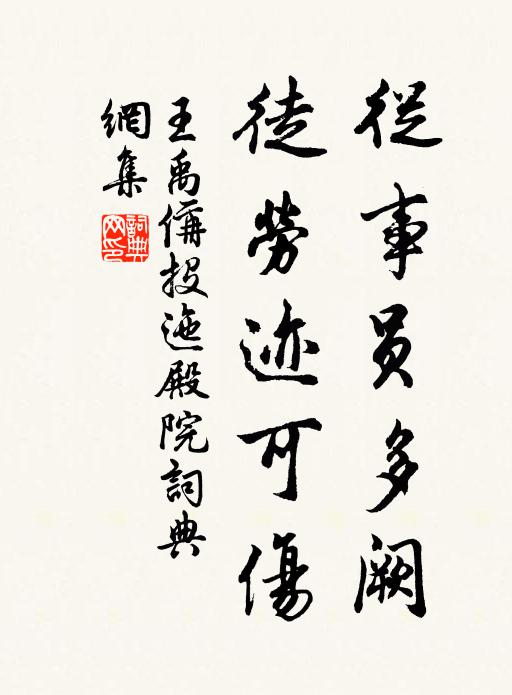 從事員多闕
徒勞迹可傷
王禹偁投迤殿院詞典
網集
詞典
网印